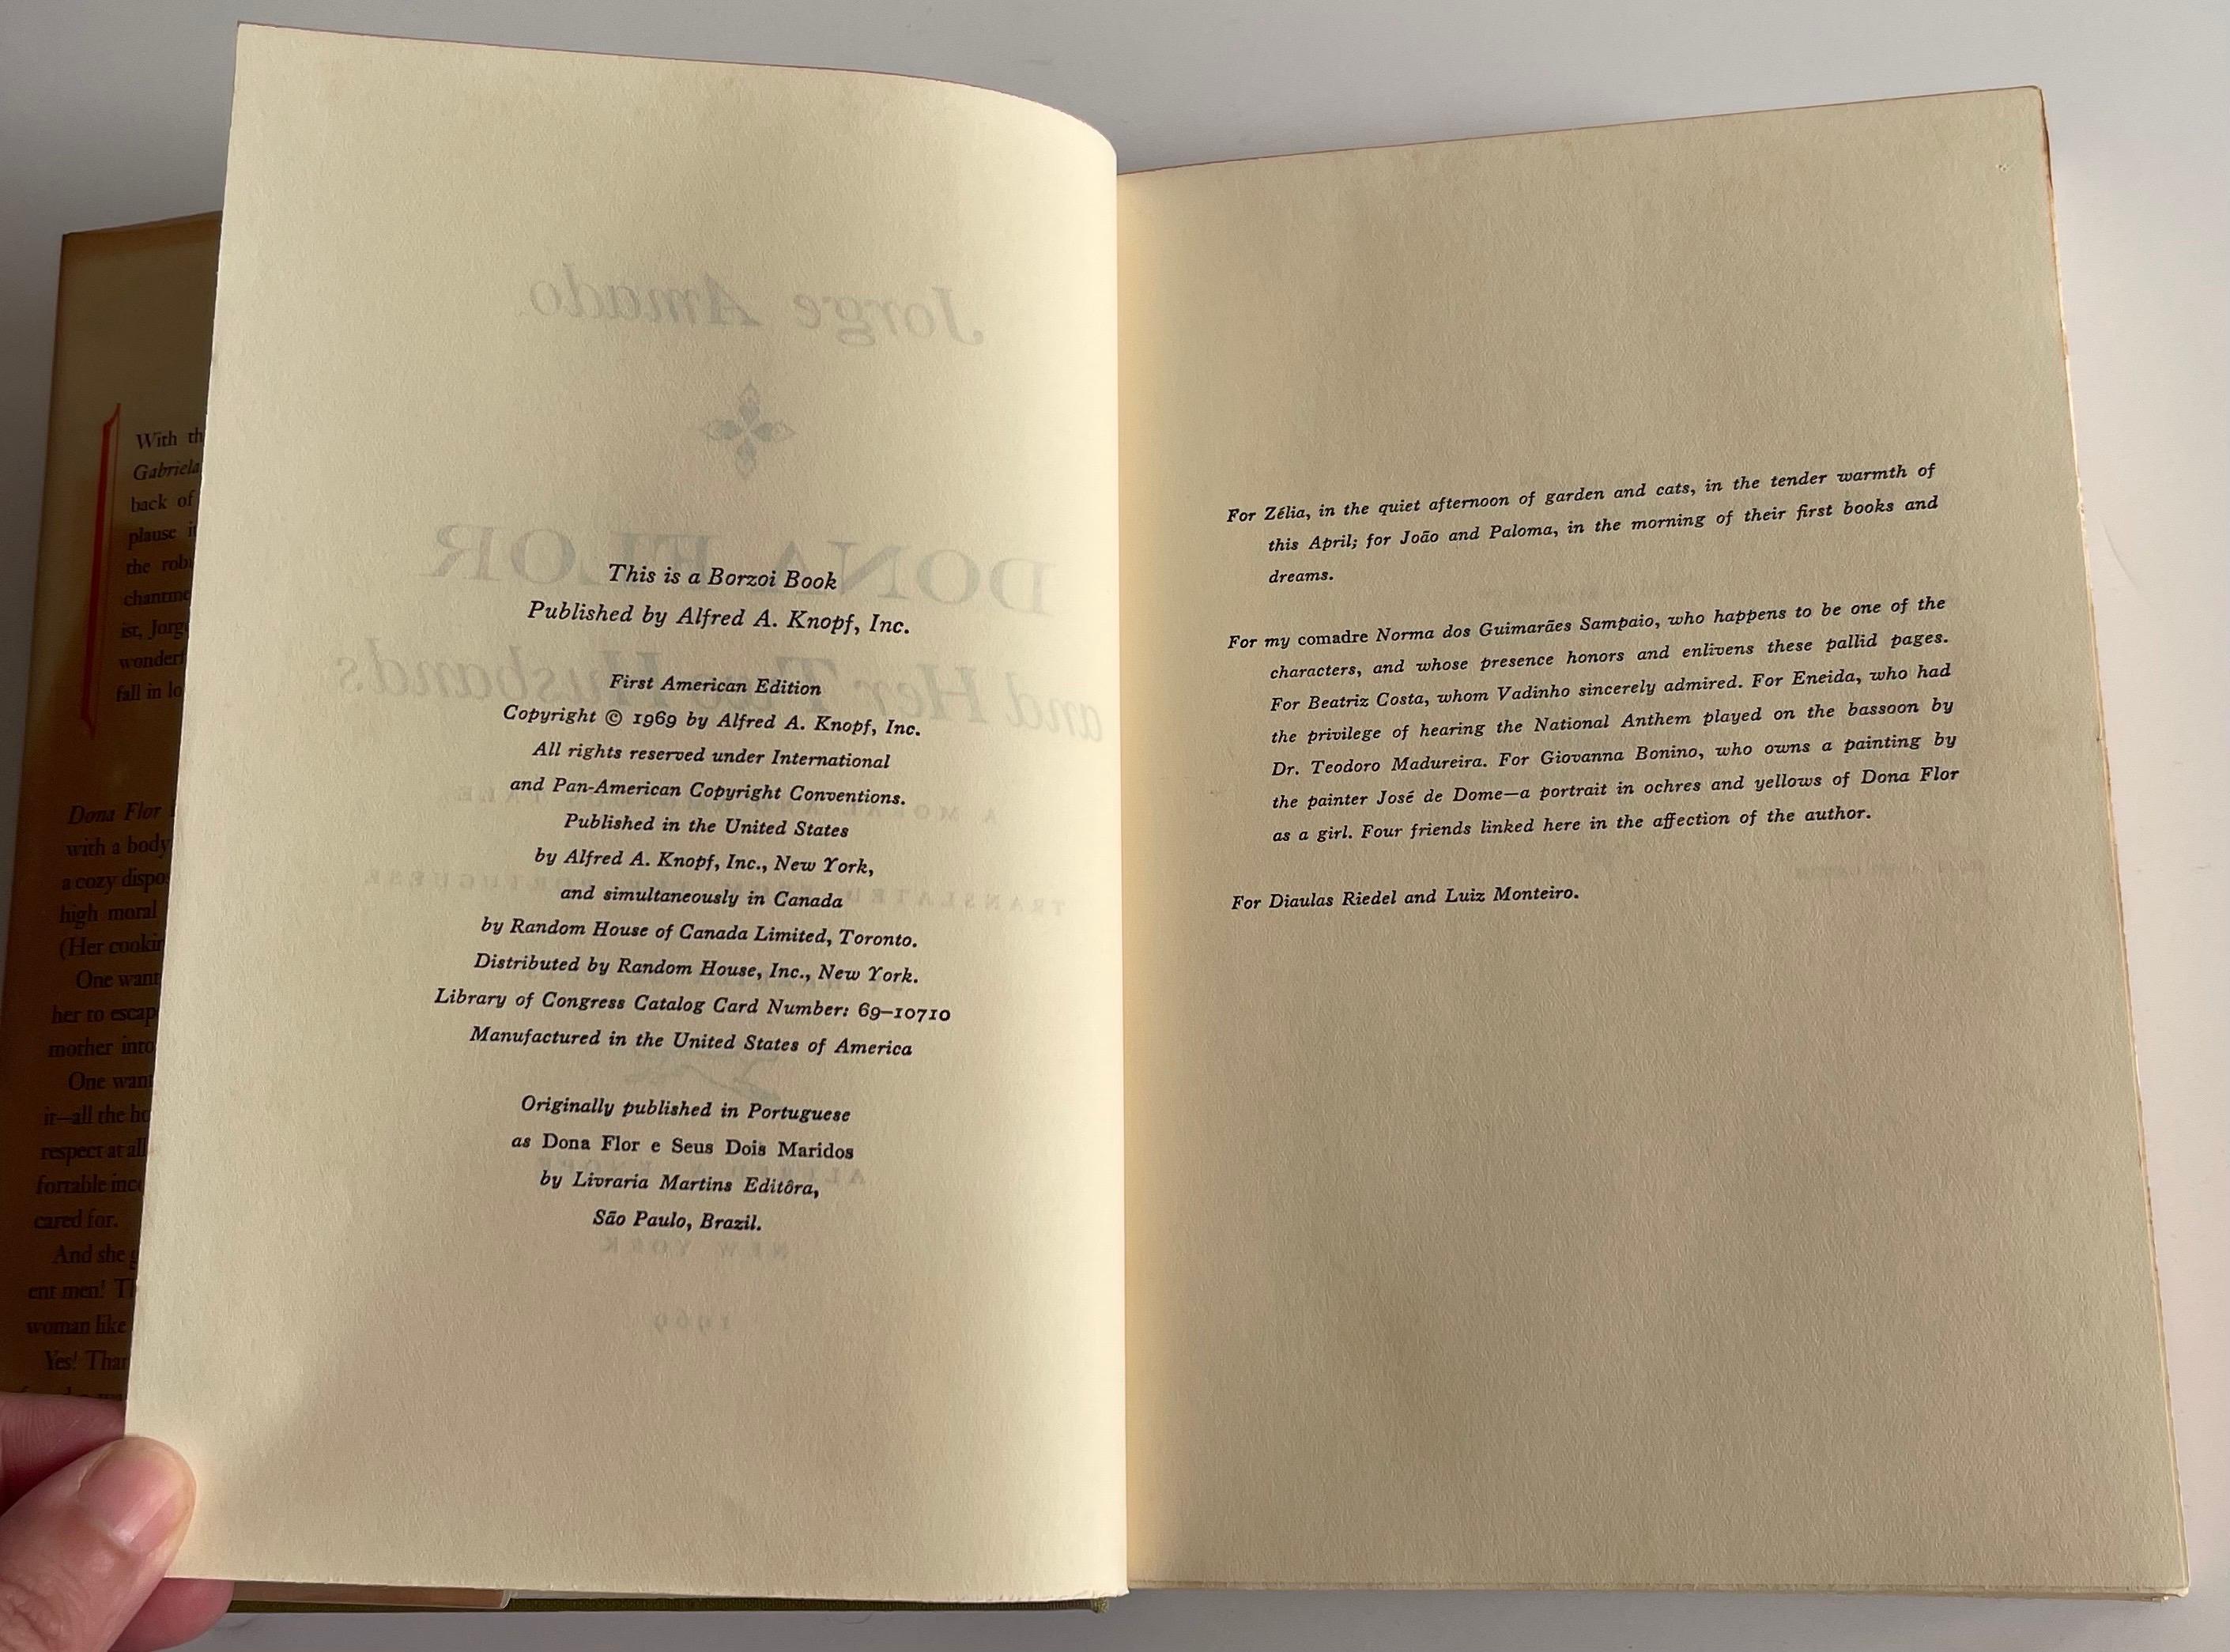 With th
Gabriela
back of
plause i
the rob
chantme
ist, Jorg
wonderf
fall in lo
Dona Flor
with a body
a cozy dispo
high moral
(Her cookin
One want
her to escap
mother into
One want
it—all the ho
respect at all
fortable inc
cared for.
And she g
ent men! Th
woman like
Yes! Than
Jorge Amado
DONA FLOR
and Her Two Husbands
A MORAL TALE
TRANSLATED PORTUGUESE
NEW YORK
1969
This is a Borzoi Book
Published by Alfred A. Knopf, Inc.
First American Edition
Copyright © 1969 by Alfred A. Knopf, Inc.
All rights reserved under International
and Pan-American Copyright Conventions.
Published in the United States
by Alfred A. Knopf, Inc., New York,
and simultaneously in Canada
by Random House of Canada Limited, Toronto.
Distributed by Random House, Inc., New York.
Library of Congress Catalog Card Number: 69–10710
Manufactured in the United States of America
Originally published in Portuguese
as Dona Flor e Seus Dois Maridos
by Livraria Martins Editôra,
São Paulo, Brazil.
For Zélia, in the quiet afternoon of garden and cats, in the tender warmth of
this April; for João and Paloma, in the morning of their first books and
dreams.
For my comadre Norma dos Guimarães Sampaio, who happens to be one of the
characters, and whose presence honors and enlivens these pallid pages.
For Beatriz Costa, whom Vadinho sincerely admired. For Eneida, who had
the privilege of hearing the National Anthem played on the bassoon by
Dr. Teodoro Madureira. For Giovanna Bonino, who owns a painting by
the painter José de Dome—a portrait in ochres and yellows of Dona Flor
as a girl. Four friends linked here in the affection of the author.
For Diaulas Riedel and Luiz Monteiro.